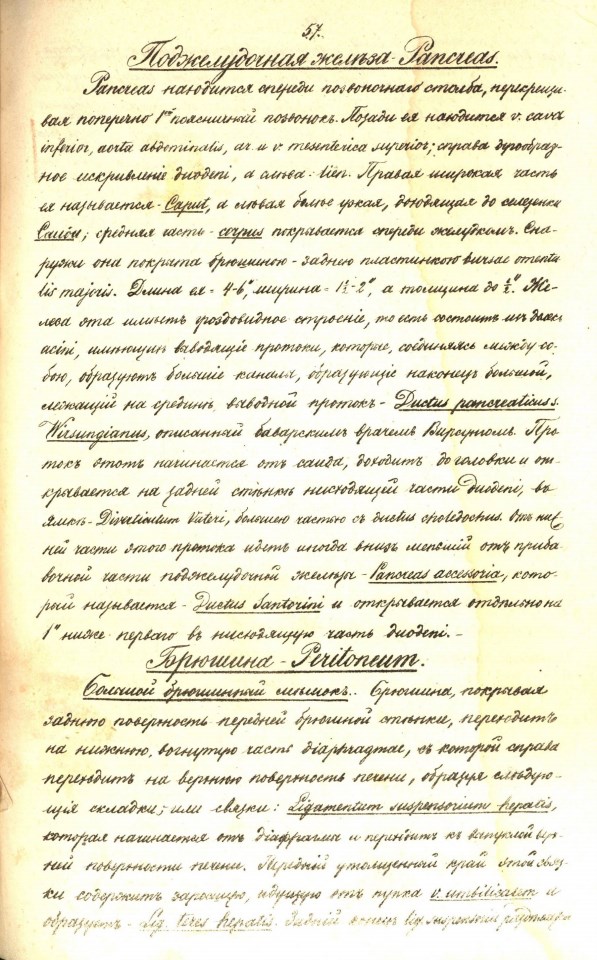 57.
Поджелудочная желѣза - Pancreas.
Pancreas находится спереди позвоночнаго столба, перекрещи-
вая поперечно 1ый поясничный позвонокъ. Позади ея находится v. cava
inferior, aorta abdominalis, ar. и v. mesenterica superior; справа дугообраз-
ное искривленіе duodeni, а слѣва - lien. Правая широкая часть
ея называется - Caput, а лѣвая болѣе узкая, доходящая до селезенки
Cauda; средняя часть - corpus покрывается спереди желудкомъ. Сна-
ружи она покрыта брюшиною - заднею пластинкою bursae omenta
lis majoris. Длина ея = 4-6", ширина = 1½-2", а толщина до ½". Же-
леза эта имѣетъ гроздовидное строеніе, то есть состоитъ изъ
acini, имѣющихъ выводящіе протоки, которые, соединяясь между со-
бою, образуютъ большіе каналы, образующіе наконецъ большой,
лежащій на срединѣ выводной протокъ - Ductus pancreaticus s.
Wirsungianus, описанный баварскимъ врачемъ Вирсунгомъ. Про-
токъ этотъ начинается отъ cauda, доходитъ до головки и от-
крывается на задней стѣнкѣ нисходящей части duodeni, въ
ямкѣ - Diverticulum Vateri, большею частью съ ductus choledochus. Отъ
ней части этого протока идетъ иногда внизъ меньшій отъ приба-
вочной части поджелудочной желѣзы - Pancreas accessoria, кото-
рый называется - Ductus Santorini и открывается отдѣльно на
1" ниже перваго въ нисходящую часть duodeni. -
Брюшина - Peritoneum.
Большой брюшинный мѣшокъ. Брюшина, покрывая
заднюю поверхность передней брюшной стѣнки, переходитъ
на нижнюю, вогнутую часть diaphragmae, съ которой справа
переходитъ на верхнюю поверхность печени, образуя слѣдую-
щія складки, или связки: Ligamentum suspensorium hepatis,
которая начинается отъ діафрагмы и переходитъ къ выпуклой верх-
ней поверхности печени. Передній утолщенный край этой связ-
ки содержитъ заросшую, идущую отъ пупка v. umbilicalem и
образуетъ - Lig. teres hepatis. Задній конецъ lig.